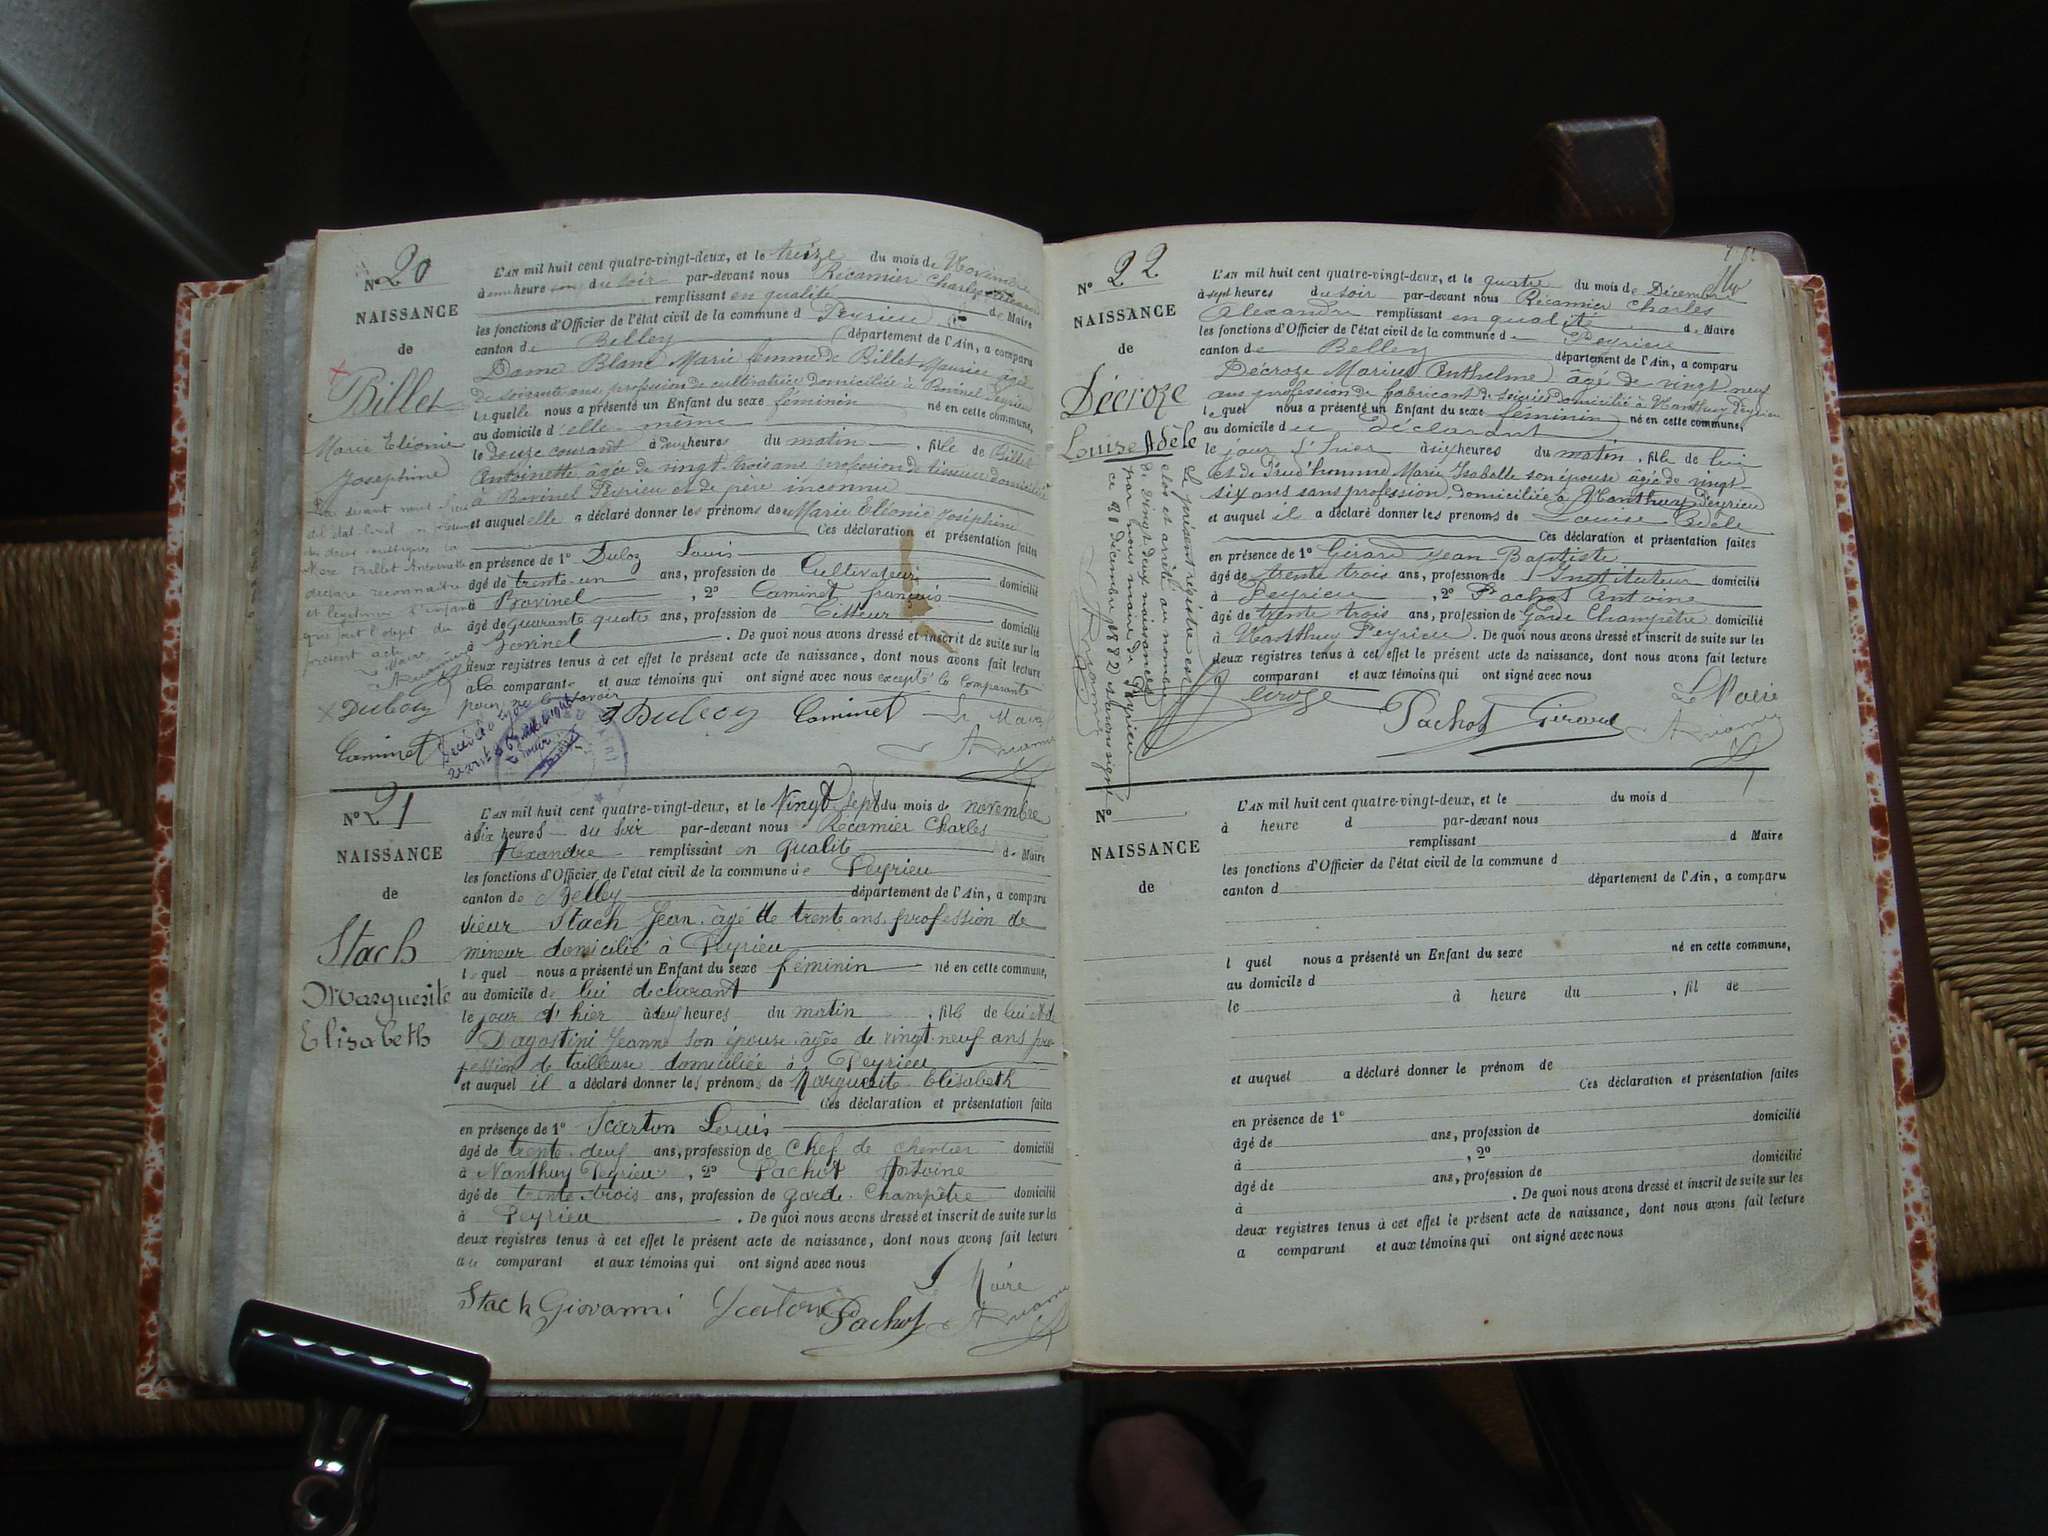 N° 20
NAISSANCE
de
Billet
Marie Eléonie
Joséphine
L'AN mil huit cent quatre-vingt-deux, et le treize du mois de Novembre
à une heure du soir par-devant nous Récamier Charles Alexandre
remplissant en qualité de Maire
les fonctions d'Officier de l'état civil de la commune d Peyrieu
canton de Belley département de l'Ain, a comparu
Dame Blanc Marie femme de Billet Maurice âgée
de soixante ans profession de cultivatrice domiciliée à Peyrieu
laquelle nous a présenté un Enfant du sexe féminin né en cette commune,
au domicile d'elle-même
le douze courant à deux heures du matin, fille de Billet
Antoinette âgée de vingt-trois ans profession de tisseuse domiciliée
à Peyrieu et de père inconnu
et auquel elle a déclaré donner les prénoms de Marie Eléonie Joséphine
Ces déclaration et présentation faites
en présence de 1° Duloz Louis
âgé de trente-un ans, profession de Cultivateur domicilié
à , 2° Caminet françois
âgé de quarante quatre ans, profession de Tisseur domicilié
à . De quoi nous avons dressé et inscrit de suite sur les
deux registres tenus à cet effet le présent acte de naissance, dont nous avons fait lecture
à la comparante et aux témoins qui ont signé avec nous excepté la Comparante
pour ne le savoir
Caminet Le Maire
Caminet
déclare reconnaître
et légitimer l'enfant
que fait l'objet du
présent acte
Maire
N° 21
NAISSANCE
de
Stach
Marguerite
Elisabeth
L'AN mil huit cent quatre-vingt-deux, et le Vingt Sept du mois de novembre
à Six heures du soir par-devant nous Récamier Charles
Alexandre remplissant en qualité de Maire
les fonctions d'Officier de l'état civil de la commune de Peyrieu
canton de Belley département de l'Ain, a comparu
sieur Stach Jean âgé de trente ans profession de
mineur domicilié à Peyrieu
lequel nous a présenté un Enfant du sexe féminin né en cette commune,
au domicile de lui déclarant
le jour d'hier à heures du matin, fille de lui et de
Dagostini Jeanne son épouse âgée de vingt-neuf ans pro
fession de tailleuse domiciliée à Peyrieu
et auquel il a déclaré donner les prénoms de Marguerite Elisabeth
Ces déclaration et présentation faites
en présence de 1° Scarton Louis
âgé de trente ans, profession de Chef de chantier domicilié
à Nanthuy Peyrieu, 2° Pachot Antoine
âgé de trente-trois ans, profession de garde-Champêtre domicilié
à Peyrieu . De quoi nous avons dressé et inscrit de suite sur les
deux registres tenus à cet effet le présent acte de naissance, dont nous avons fait lecture
au comparant et aux témoins qui ont signé avec nous
Maire
Stach Giovanni Scarton Pachot
N° 22
NAISSANCE
de
Décroze
Louise Adèle
L'AN mil huit cent quatre-vingt-deux, et le quatre du mois de Décembre
à sept heures du soir par-devant nous Récamier Charles
Alexandre remplissant en qualité de Maire
les fonctions d'Officier de l'état civil de la commune de Peyrieu
canton de Belley département de l'Ain, a comparu
Décroze Marius Anthelme âgé de vingt neuf
ans profession de fabricant de soieries domicilié à Nanthuy Peyrieu
lequel nous a présenté un Enfant du sexe féminin né en cette commune,
au domicile du déclarant
le jour d'hier à six heures du matin, fille de lui
et de Prud'homme Marie Isabelle son épouse âgée de vingt
six ans sans profession, domiciliée à Nanthuy Peyrieu
et auquel il a déclaré donner les prénoms de Louise Adèle
Ces déclaration et présentation faites
en présence de 1° Gérard Jean-Baptiste
âgé de trente trois ans, profession de Instituteur domicilié
à Peyrieu, 2° Pachot Antoine
âgé de trente trois ans, profession de Garde Champêtre domicilié
à Nanthuy Peyrieu. De quoi nous avons dressé et inscrit de suite sur les
deux registres tenus à cet effet le présent acte de naissance, dont nous avons fait lecture
comparant et aux témoins qui ont signé avec nous
Pachot Gérard Le Maire
Le présent registre est
clos et arrêté au nombre
de vingt deux naissances
par nous maire de Peyrieu
ce 31 décembre 1882
N°
NAISSANCE
de
L'AN mil huit cent quatre-vingt-deux, et le du mois d
à heure d par-devant nous
remplissant d Maire
les fonctions d'Officier de l'état civil de la commune d
canton d département de l'Ain, a comparu
l quel nous a présenté un Enfant du sexe né en cette commune,
au domicile d
le à heure du , fil de
et auquel a déclaré donner le prénom de
Ces déclaration et présentation faites
en présence de 1°
domicilié
âgé de ans, profession de
à , 2°
domicilié
âgé de ans, profession de
à . De quoi nous avons dressé et inscrit de suite sur les
deux registres tenus à cet effet le présent acte de naissance, dont nous avons fait lecture
a comparant et aux témoins qui ont signé avec nous